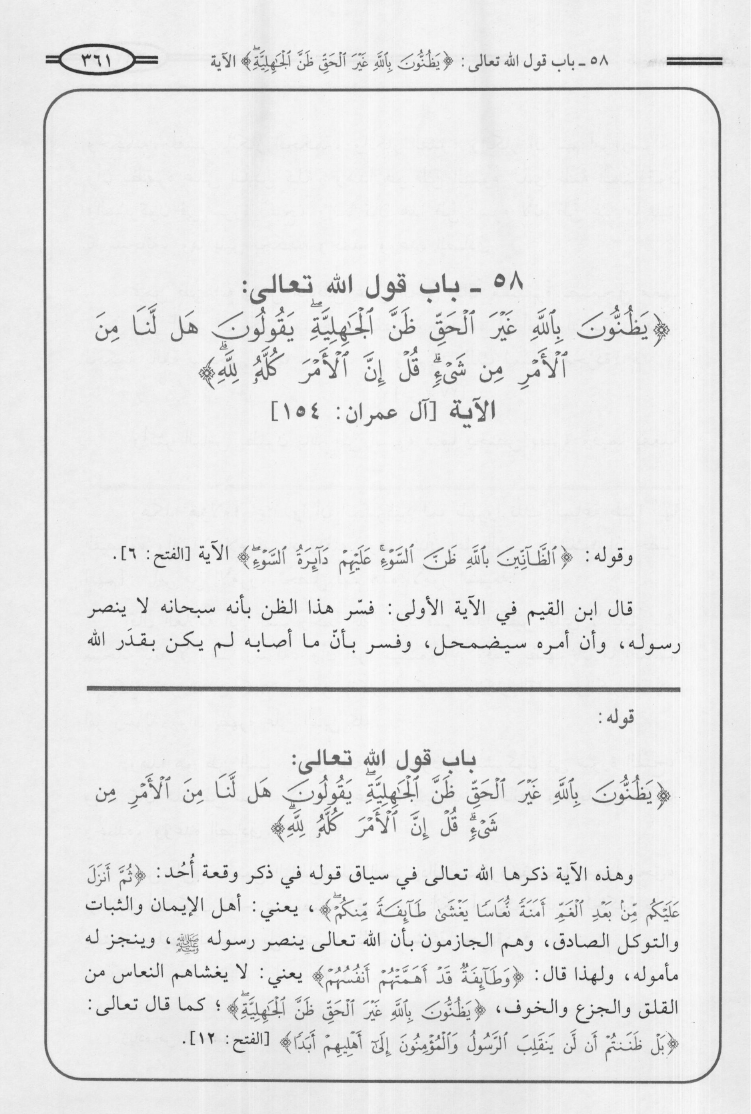 ٥٨ ـ باب قول الله تعالى: ﴿يَظُنُّونَ بِٱللَّهِ غَيْرَ ٱلْحَقِّ ظَنَّ ٱلْجَٰهِلِيَّةِۖ﴾ الآية
٣٦١
٥٨ ـ باب قول الله تعالى:
﴿يَظُنُّونَ بِٱللَّهِ غَيْرَ ٱلْحَقِّ ظَنَّ ٱلْجَٰهِلِيَّةِۖ يَقُولُونَ هَل لَّنَا مِنَ
ٱلْأَمْرِ مِن شَىْءٍۗ قُلْ إِنَّ ٱلْأَمْرَ كُلَّهُۥ لِلَّهِۗ﴾
الآية [آل عمران: ١٥٤]
وقوله: ﴿ٱلظَّآنِّينَ بِٱللَّهِ ظَنَّ ٱلسَّوْءِۚ عَلَيْهِمْ دَآئِرَةُ ٱلسَّوْءِۖ﴾ الآية [الفتح: ٦].
قال ابن القيم في الآية الأولى: فسّر هذا الظن بأنه سبحانه لا ينصر
رسوله، وأن أمره سيضمحل، وفسر بأنّ ما أصابه لم يكن بقدَر الله
قوله:
باب قول الله تعالى:
﴿يَظُنُّونَ بِٱللَّهِ غَيْرَ ٱلْحَقِّ ظَنَّ ٱلْجَٰهِلِيَّةِۖ يَقُولُونَ هَل لَّنَا مِنَ ٱلْأَمْرِ مِن
شَىْءٍۗ قُلْ إِنَّ ٱلْأَمْرَ كُلَّهُۥ لِلَّهِۗ﴾
وهذه الآية ذكرها الله تعالى في سياق قوله في ذكر وقعة أُحُد: ﴿ثُمَّ أَنزَلَ
عَلَيْكُم مِّنۢ بَعْدِ ٱلْغَمِّ أَمَنَةً نُّعَاسًا يَغْشَىٰ طَآئِفَةً مِّنكُمْۖ﴾، يعني: أهل الإيمان والثبات
والتوكل الصادق، وهم الجازمون بأن الله تعالى ينصر رسوله ﷺ، وينجز له
مأموله، ولهذا قال: ﴿وَطَآئِفَةٌ قَدْ أَهَمَّتْهُمْ أَنفُسُهُمْ﴾ يعني: لا يغشاهم النعاس من
القلق والجزع والخوف، ﴿يَظُنُّونَ بِٱللَّهِ غَيْرَ ٱلْحَقِّ ظَنَّ ٱلْجَٰهِلِيَّةِۖ﴾؛ كما قال تعالى:
﴿بَلْ ظَنَنتُمْ أَن لَّن يَنقَلِبَ ٱلرَّسُولُ وَٱلْمُؤْمِنُونَ إِلَىٰٓ أَهْلِيهِمْ أَبَدًا﴾ [الفتح: ١٢].